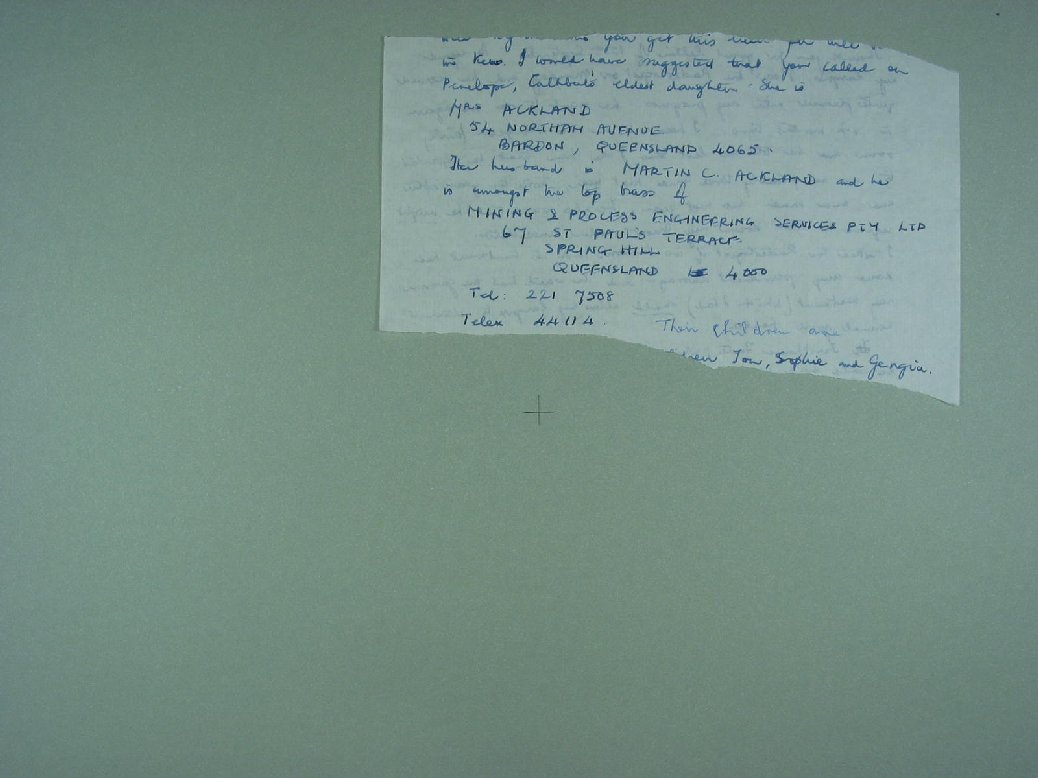 you get this
in Kew. I would have suggested that you called on
Penelope, Cuthbert's eldest daughter. She is
MRS ACKLAND
54 NORTHAM AVENUE
BARDON, QUEENSLAND 4065.
Her husband is MARTIN C. ACKLAND and he
is amongst the top brass of
MINING & PROCESS ENGINEERING SERVICES PTY LTD
67 ST PAUL'S TERRACE
SPRING HILL
QUEENSLAND 4000
Tel: 221 7508
Telex 44114. Their children are
Tom, Sophie and Georgia.